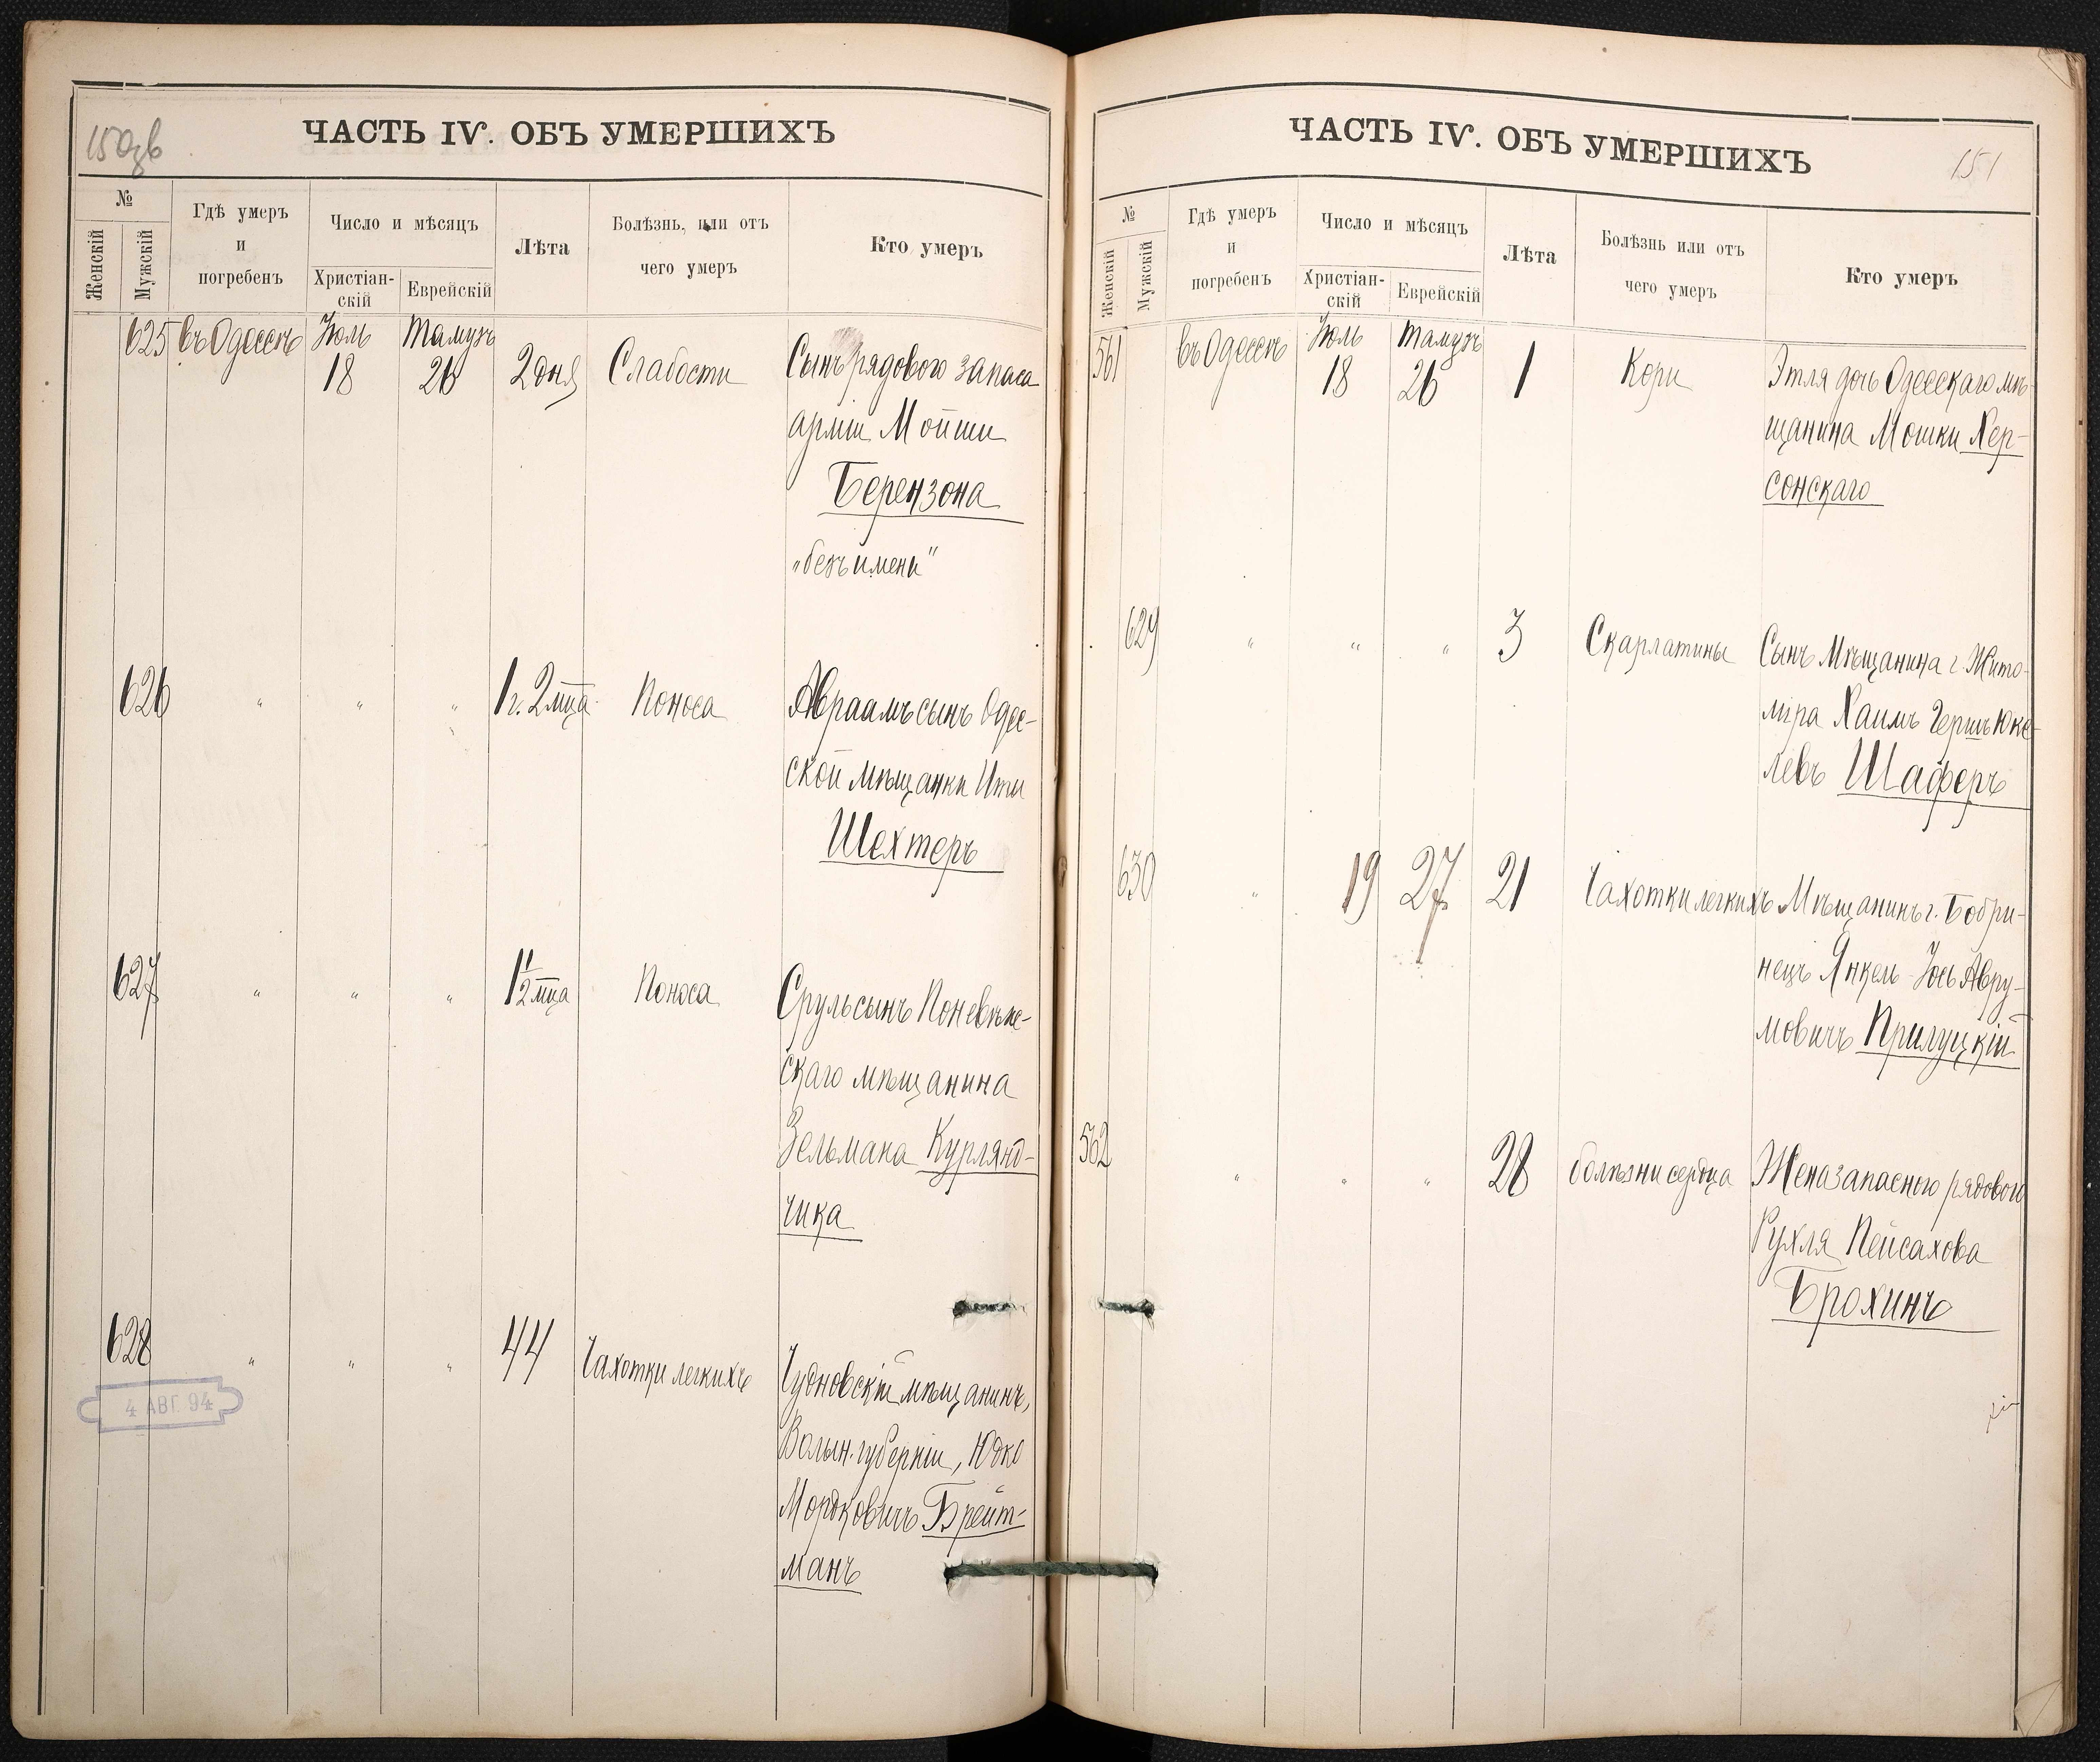 150 об
ЧАСТЬ IV. ОБЪ УМЕРШИХЪ
№
Женскій
Мужскій
Гдѣ умеръ
и
погребенъ
Число и мѣсяцъ
Христіан-
скій
Еврейскій
Лѣта
Болѣзнь, или отъ
чего умеръ
Кто умеръ
625 въ Одессѣ Іюль Тамузъ
18 26 2 дня Слабости Сынъ рядового запаса
арміи Мойши
Берензона
„безъ имени"
626 " " " 1 г. 2 мца Поноса Авраамъ сынъ Одес-
ской мѣщанки Иты
Шехтеръ
627 " " " 1 1/2 мца Поноса Сруль сынъ Поневѣже-
скаго мѣщанина
Зельмана Курлянд-
чика
628 " " " 44 Чахотки легкихъ Чудновскій мѣщанинъ,
Волын. губерніи, Юдко
Мордковичъ Брейт-
манъ
4 АВГ. 94
ЧАСТЬ IV. ОБЪ УМЕРШИХЪ
151
№
Женскій
Мужскій
Гдѣ умеръ
и
погребенъ
Число и мѣсяцъ
Христіан-
скій
Еврейскій
Лѣта
Болѣзнь или отъ
чего умеръ
Кто умеръ
561 въ Одессѣ Іюль Тамузъ
18 26 1 Кори Этля дочь Одесскаго мѣ-
щанина Мошки Хер-
сонскаго
629 " " " 3 Скарлатины Сынъ Мѣщанина г. Жито-
міра Хаимъ Гершъ Юке-
левъ Шаферъ
630 " 19 27 21 Чахотки легкихъ Мѣщанинъ г. Бобри-
нецъ Янкель-Іось Авру-
мовичъ Прилуцкій
562 " " " 28 болѣзни сердца Жена запасного рядового
Рухля Пейсахова
Брохинъ